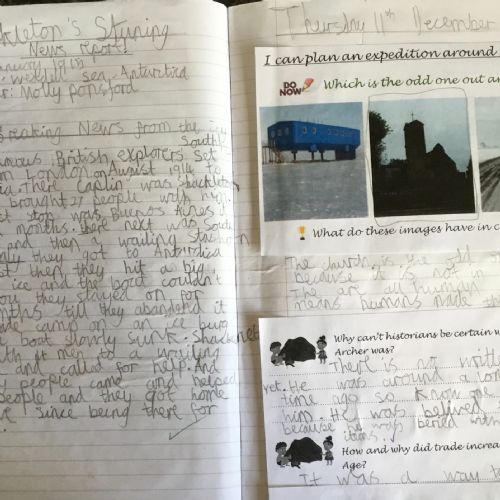 ckleton's Stuning
News report!
January 1915
: Weddell Sea, Antarctica
r: Molly Ponsford
Breaking News From the icy
South!
amous British explorers set
m London on August 1914 to
There Captin was Shackleton
brought 27 people with him.
st stop was Buenos Aires
months. there next was South
and then a wailing station
ly they got to Antarctica
t then they hit a big
ice and the boat couldn't
they stayed on for
nths till they abandend it
ade camp on an ice burg
boat slowly sunk. Shackleton
ith 4 men to a wailing
and called for help. And
y people came and helped
eople and they got home
e since being there for
Thursday 11th December
I can plan an expedition around
DO NOW
Which is the odd one out an
What do these images have in c
The church is the odd o
because it is not in
The are all human
means humans made th
Why can't historians be certain w
Archer was?
There is no writt
yet. He was around a lon
time ago so know one
him. He was belived
because he was bered with
items.
How and why did trade increa
Age?
It was a way t